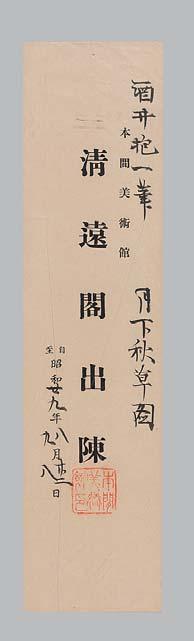 酒井抱一筆　月下秋草図
本間美術館
清遠閣出陳
自至 昭和廿九年 八九 月 廿二八 日